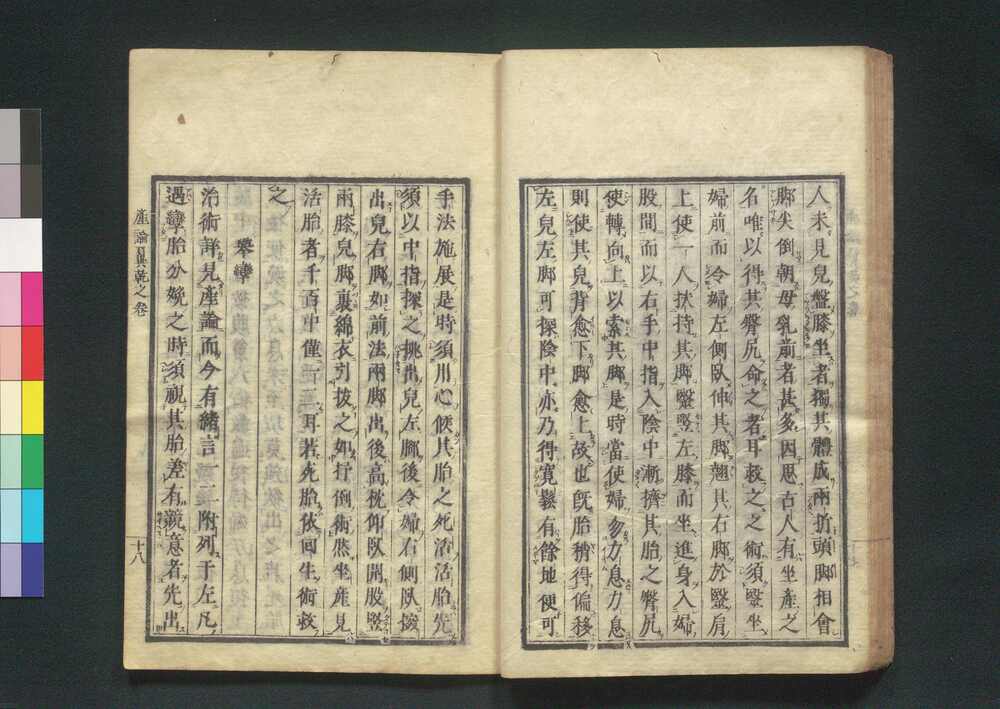 人未見兒盤膝坐者獨其體成兩折頭脚相會
脚尖倒朝母乳前者甚多因思古人有坐產之
名唯以得其臀尻命之者耳救之之術須毉坐
婦前而令婦左側臥伸其脚翹其右脚於毉肩
上使一人扶持其脚毉竪左膝而坐進身入婦
股間而以右手中指入陰中漸擠其胎之臀尻
使轉向上以索其脚是時當使婦勿力息力息
則使其兒背愈下脚愈上故也既胎稍得偏移
左兒左脚可探陰中亦乃得寬鬆有餘地便可
手法施展是時須用心候其胎之死活活胎先
須以中指探之挑出兒左脚後令婦右側臥撥
出兒右脚如前法兩脚出後高枕仰臥開股竪
兩膝兒脚裹綿衣引拔之如行倒術然坐產見
活胎者千百中僅一二耳若死胎依回生術救
之
攣
治術詳見產論而今有緒言一二附列于左凡
遇孿胎分娩之時須視其胎差有競意者先出
產論翼乾之卷
十八